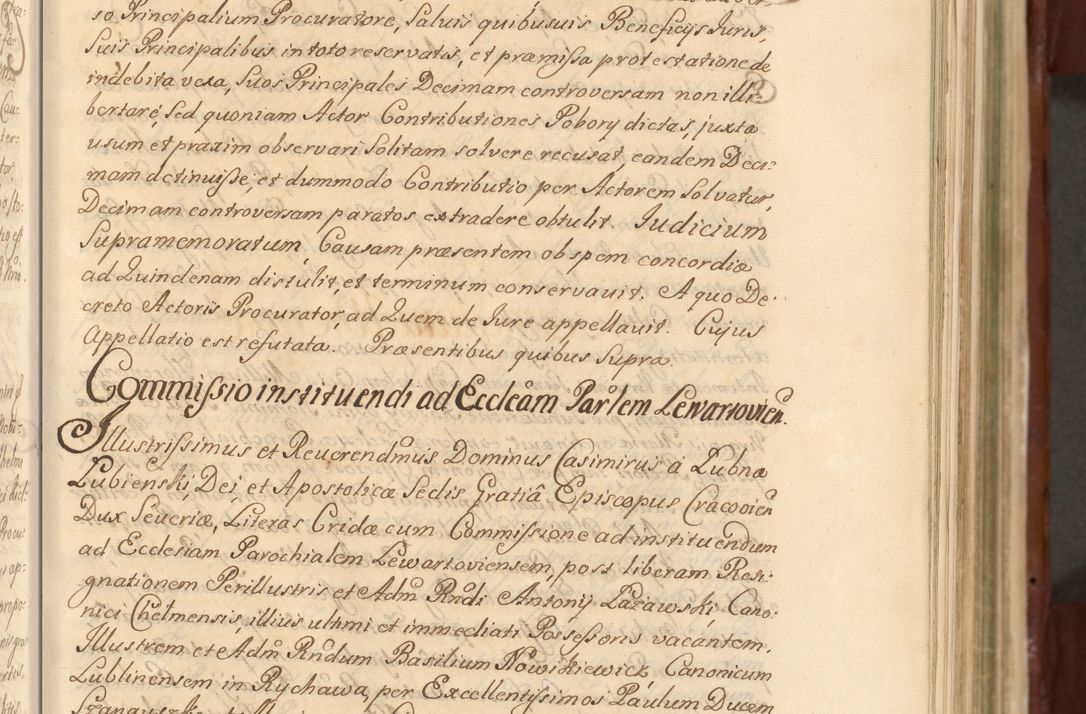 so Principalium Procuratore, Salvis quibusvis Beneficijs Juris,
Suis Principalibus in toto reservatis, et præmissa protestatione de
indebita vexa, Suos Principales Decimam controversam non illi-
bertare, Sed quoniam Actor Contributiones Pobory dictas, juxta
usum et praxim observari Solitam solvere recusat, eandem Deci-
mam detinuisse, et dummodo Contributio per Actorem Solvatur,
Decimam controversam paratos extradere obtulit. Judicium
Supramemoratum Causam præsentem ob spem concordiæ
ad Quindenam distulit, et terminum conservauit. A quo De-
creto Actoris Procurator, ad Quem de Jure appellauit. Cujus
Appellatio est refutata. Præsentibus quibus Supra.
Commissio instituendi ad Eccleam Parlem Lewartovien.
Illustrissimus et Reuerendmus Dominus Casimirus à Lubna
Lubienski, Dei, et Apostolicæ Sedis Gratiâ Episcopus Cracovien
Dux Seueriæ, Literas Cridæ cum Commissione ad instituendum
ad Ecclesiam Parochialem Lewartoviensem, post liberam Resi-
gnationem Perillustris et Adm Rndi Antonij Łazawski, Cano-
nici Chelmensis, illius ultimi et immediati Possessoris vacantem,
Illustrem et Adm Rndum Basilium Nowikiewicz, Canonicum
Lublinensem in Rychawa, per Excellentissimos Paulum Ducem